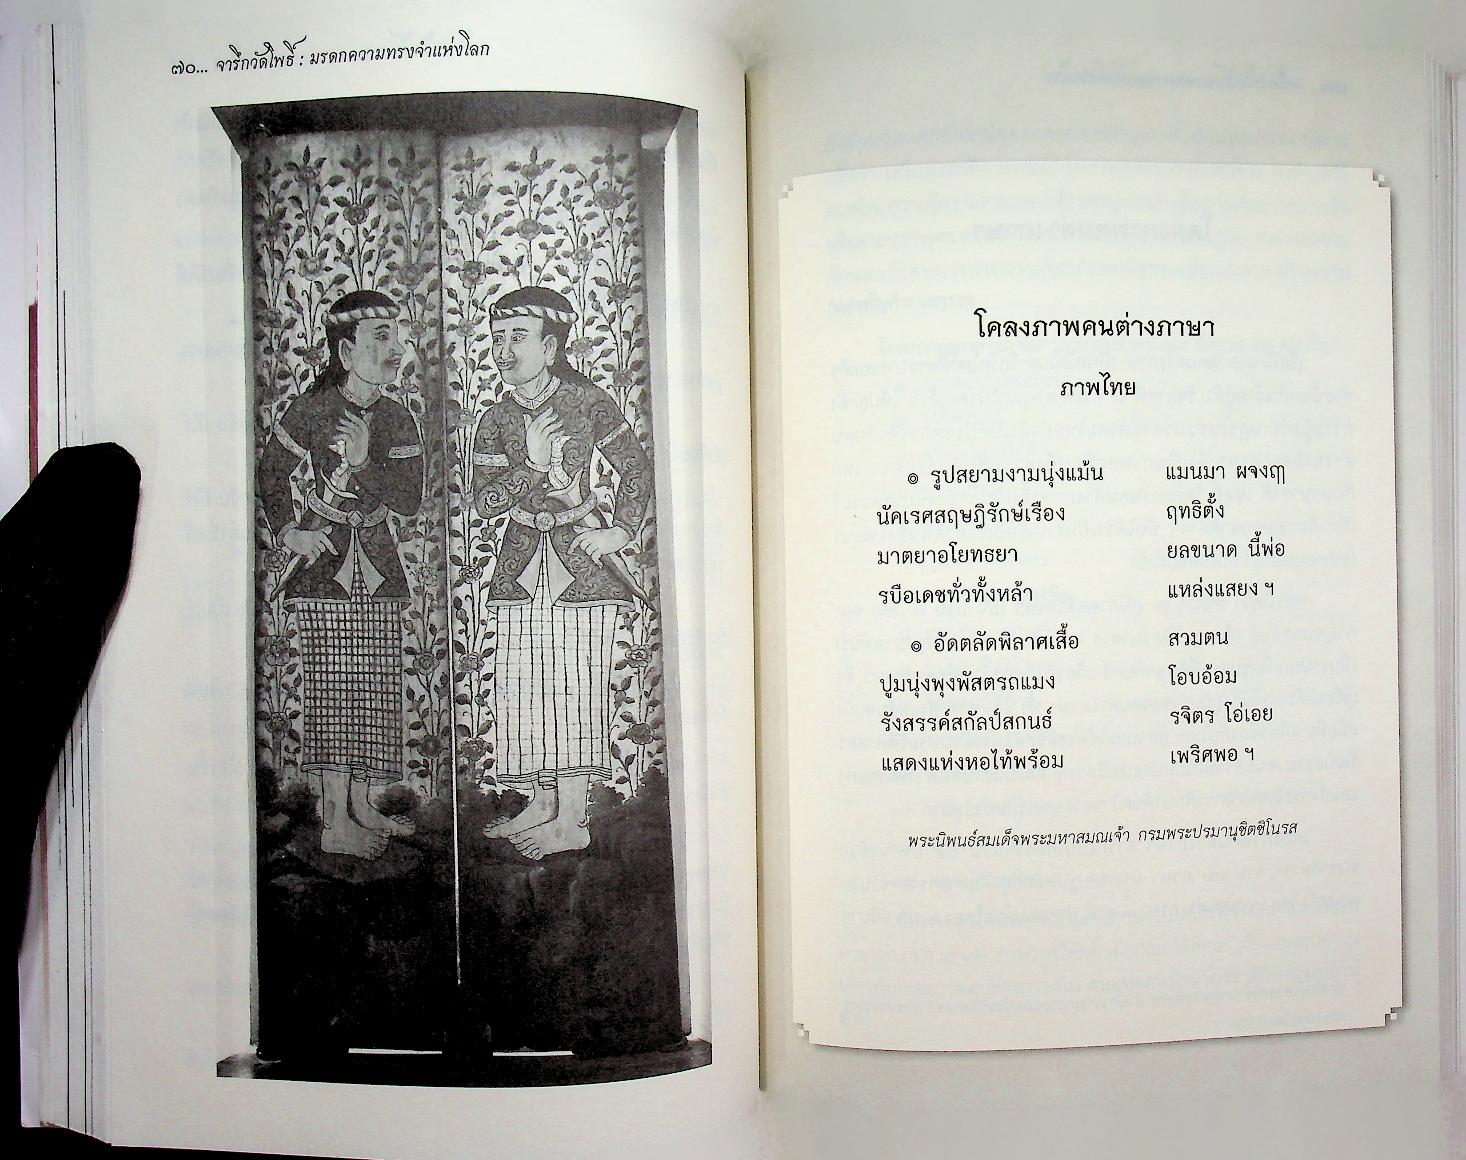 ๗๐... จารึกวัดโพธิ์ : มรดกความทรงจำแห่งโลก
โคลงภาพคนต่างภาษา
ภาพไทย
๏ รูปสยามงามนุ่งแม้น แมนมา ผจงฤๅ
นัคเรศสฤษฎิรักษ์เรือง ฤทธิตั้ง
มาตยาอโยทธยา ยลขนาด นี้พ่อ
รบือเดชทั่วทั้งหล้า แหล่งแสยง ฯ
๏ อัดตลัดพิลาศเสื้อ สวมตน
ปูมนุ่งพุงพัสตรถแมง โอบอ้อม
รังสรรค์สกัลป์สกนธ์ รจิตร โอ่เอย
แสดงแห่งหอไท้พร้อม เพริศพอ ฯ
พระนิพนธ์สมเด็จพระมหาสมณเจ้า กรมพระปรมานุชิตชิโนรส